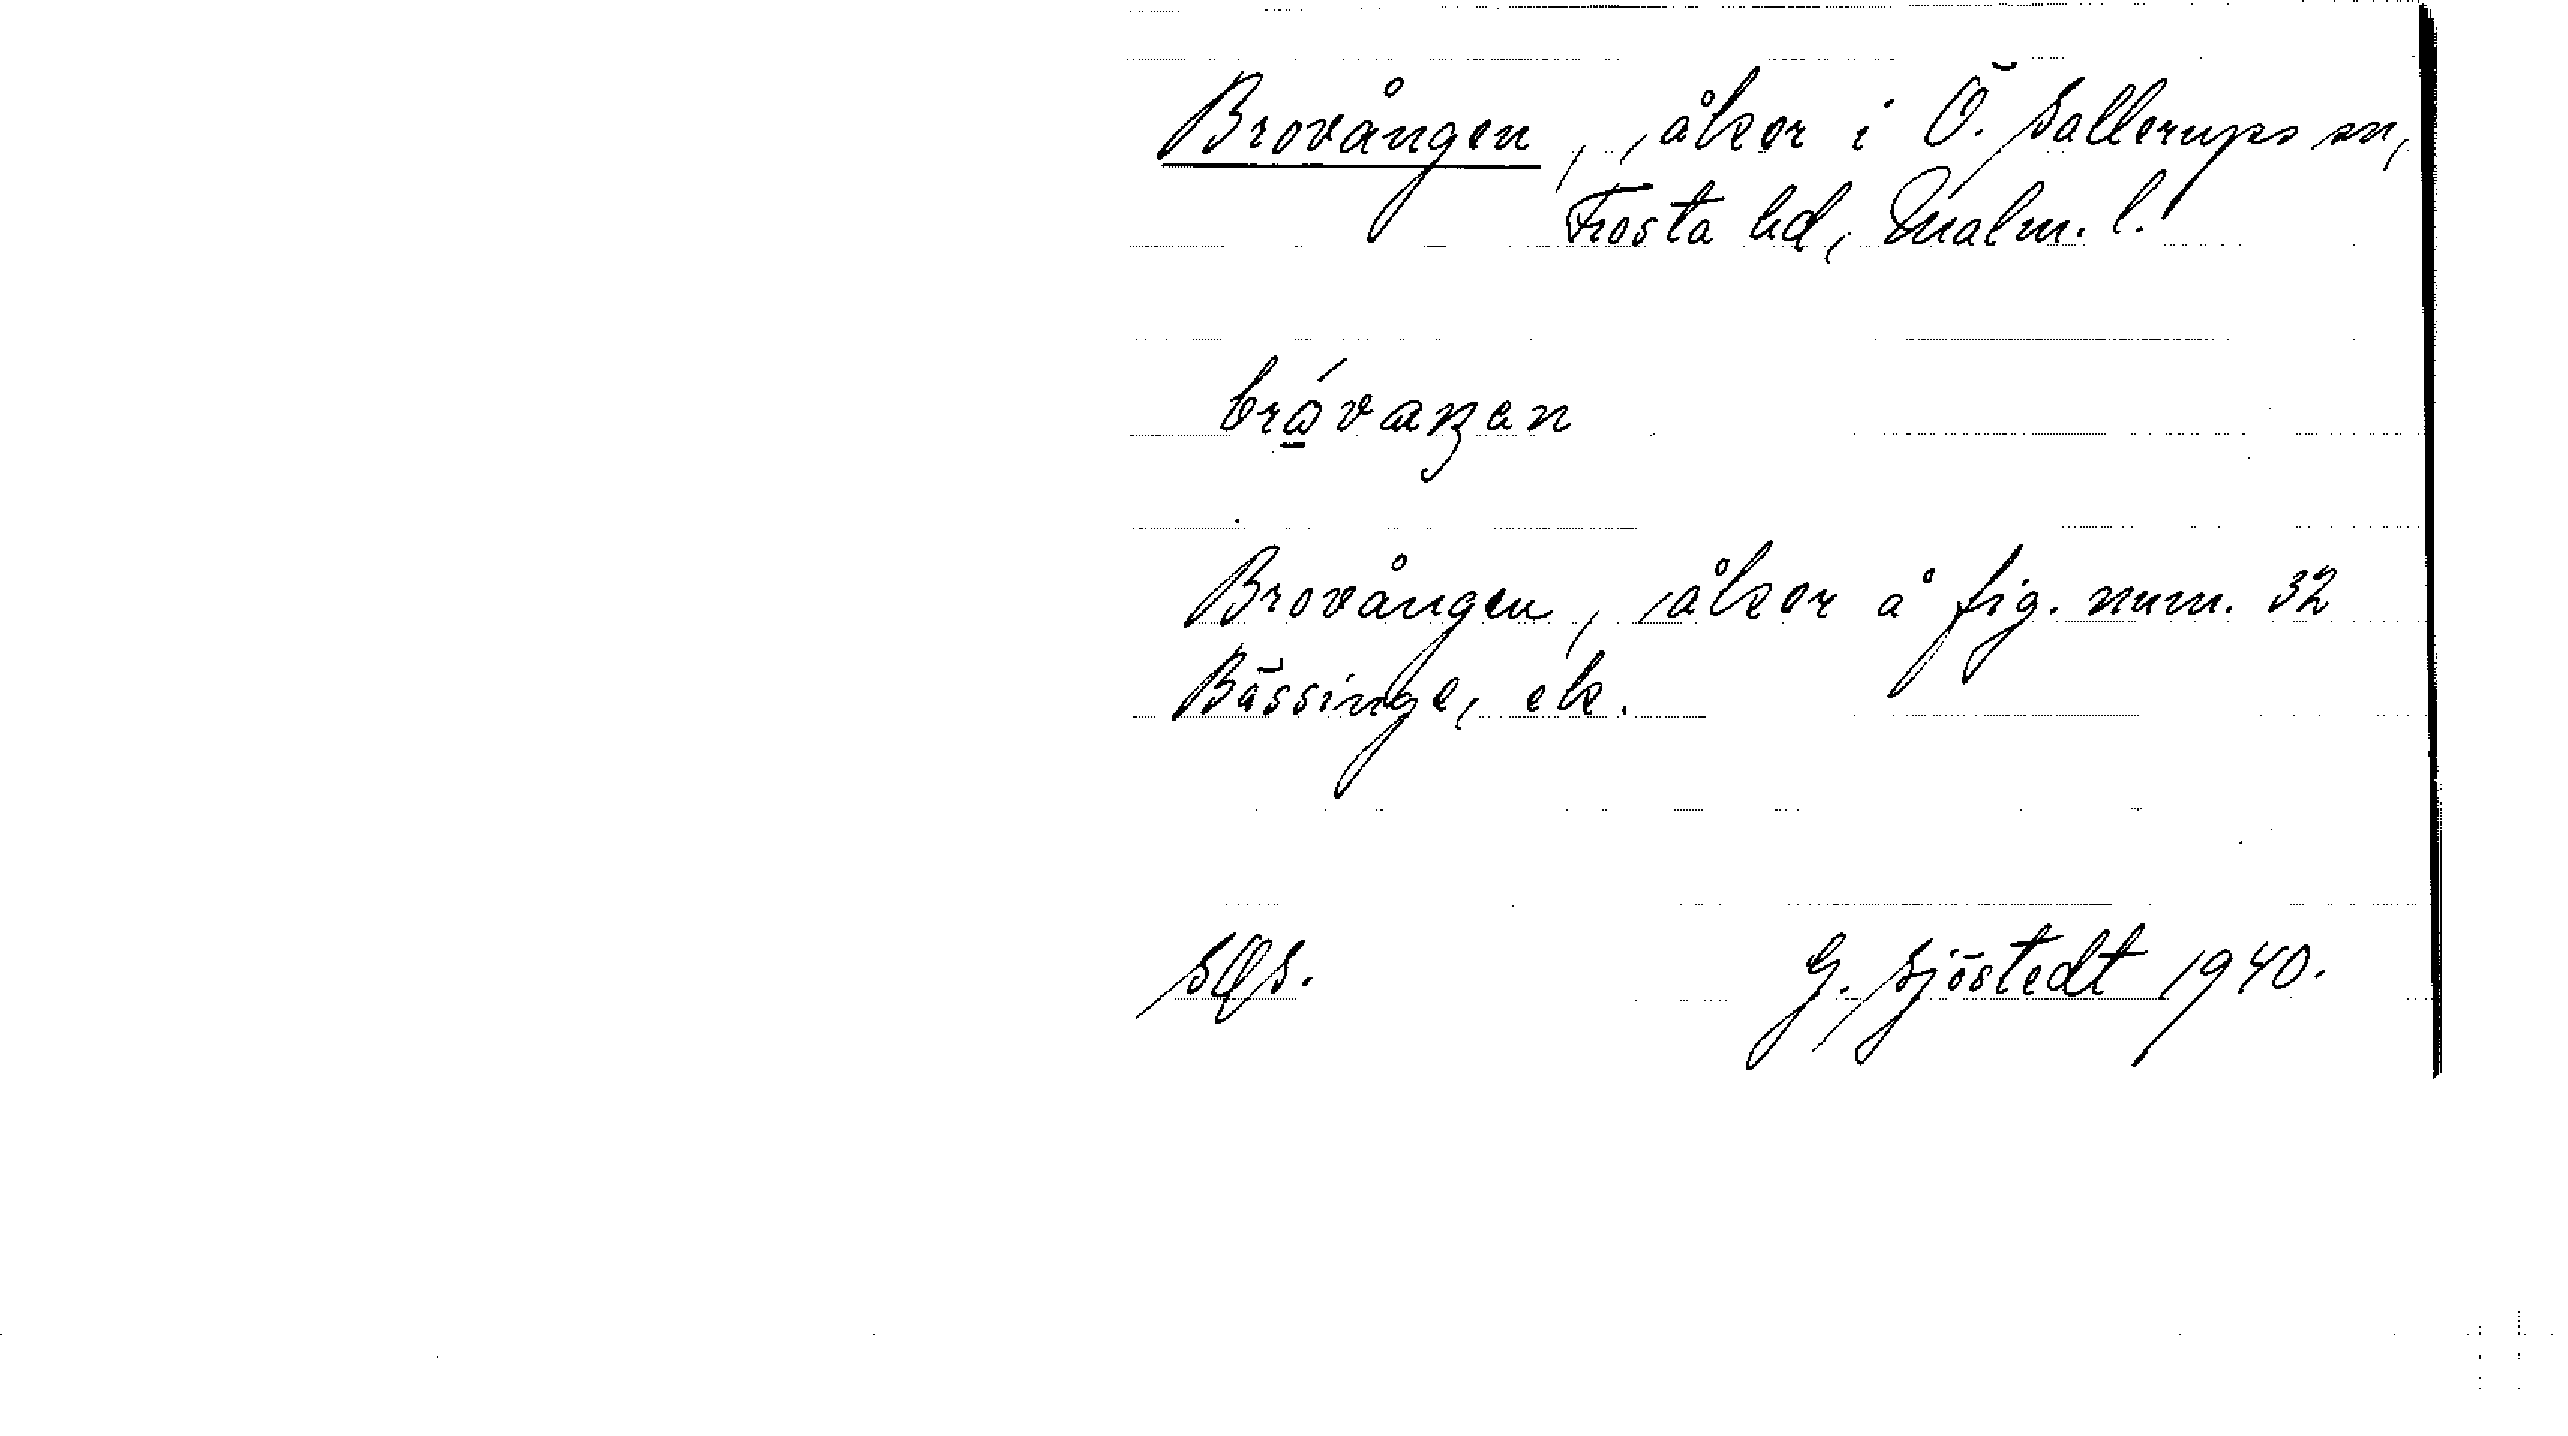 Brovången, åker i Ö. Sallerups sn,
Frosta hd, Malm. l.
bróvaŋen
Brovången, åker å fig. num. 32
Bässinge, ek.
SOS.
G. Sjöstedt 1940.